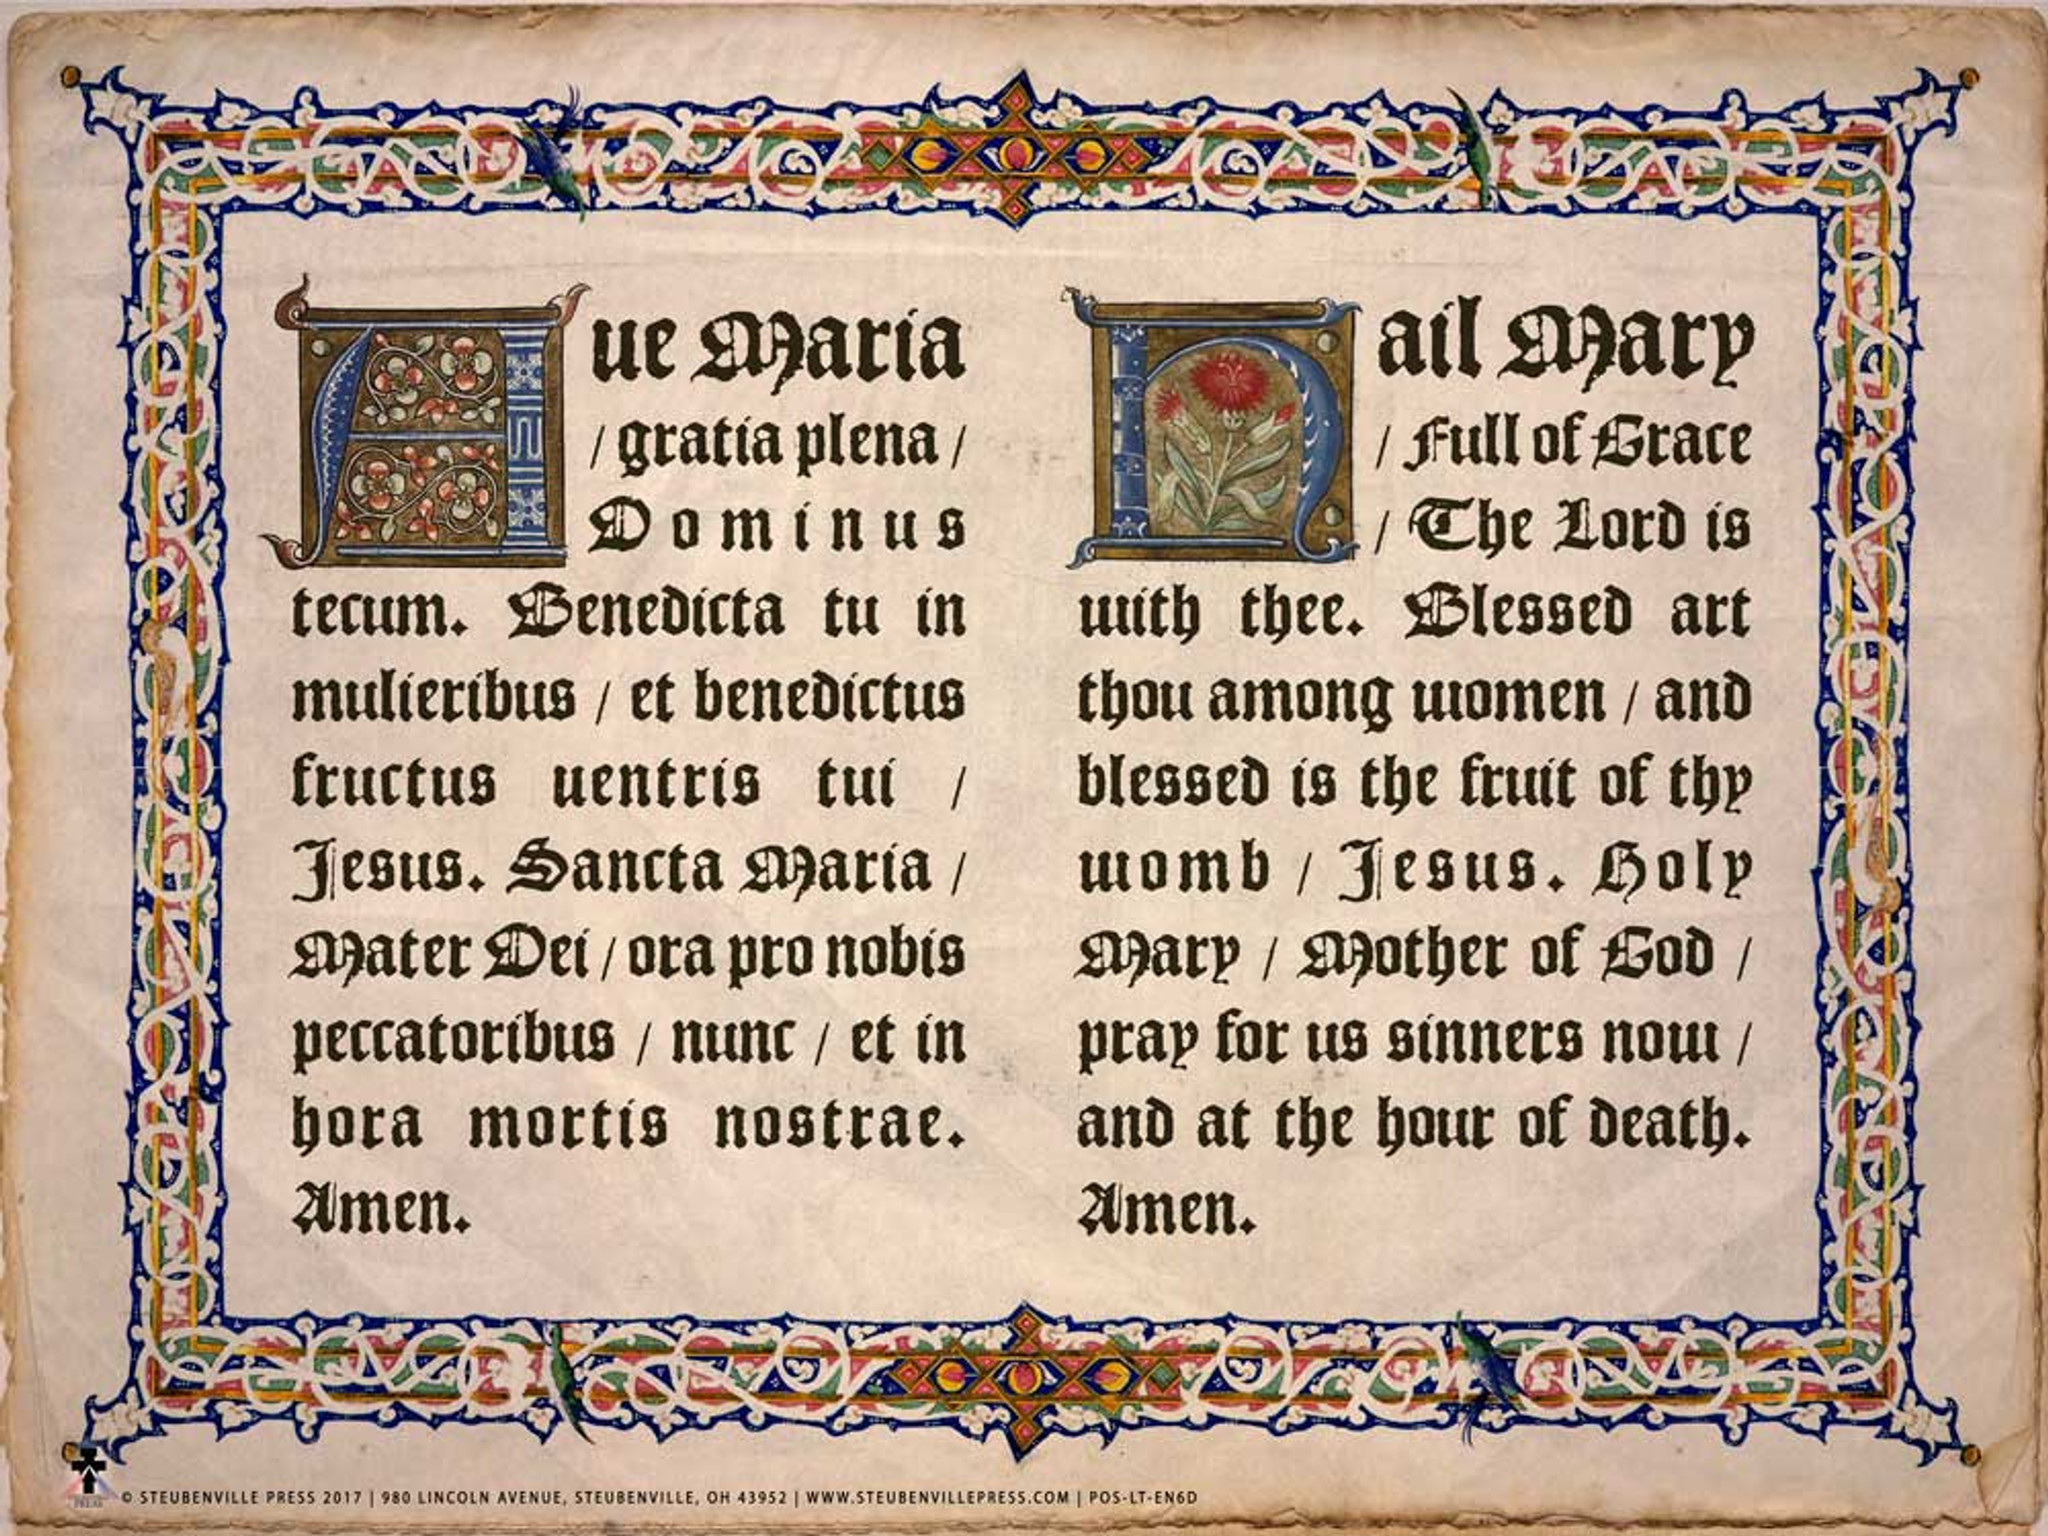 Aue Maria
/ gratia plena /
Dominus
tecum. Benedicta tu in
mulieribus / et benedictus
fructus uentris tui /
Jesus. Sancta Maria /
Mater Dei / ora pro nobis
peccatoribus / nunc / et in
hora mortis nostrae.
Amen.
Hail Mary
/ Full of Grace
/ The Lord is
with thee. Blessed art
thou among women / and
blessed is the fruit of thy
womb / Jesus. Holy
Mary / Mother of God /
pray for us sinners now /
and at the hour of death.
Amen.
PRESS
© STEUBENVILLE PRESS 2017 | 980 LINCOLN AVENUE, STEUBENVILLE, OH 43952 | WWW.STEUBENVILLEPRESS.COM | POS-LT-EN6D